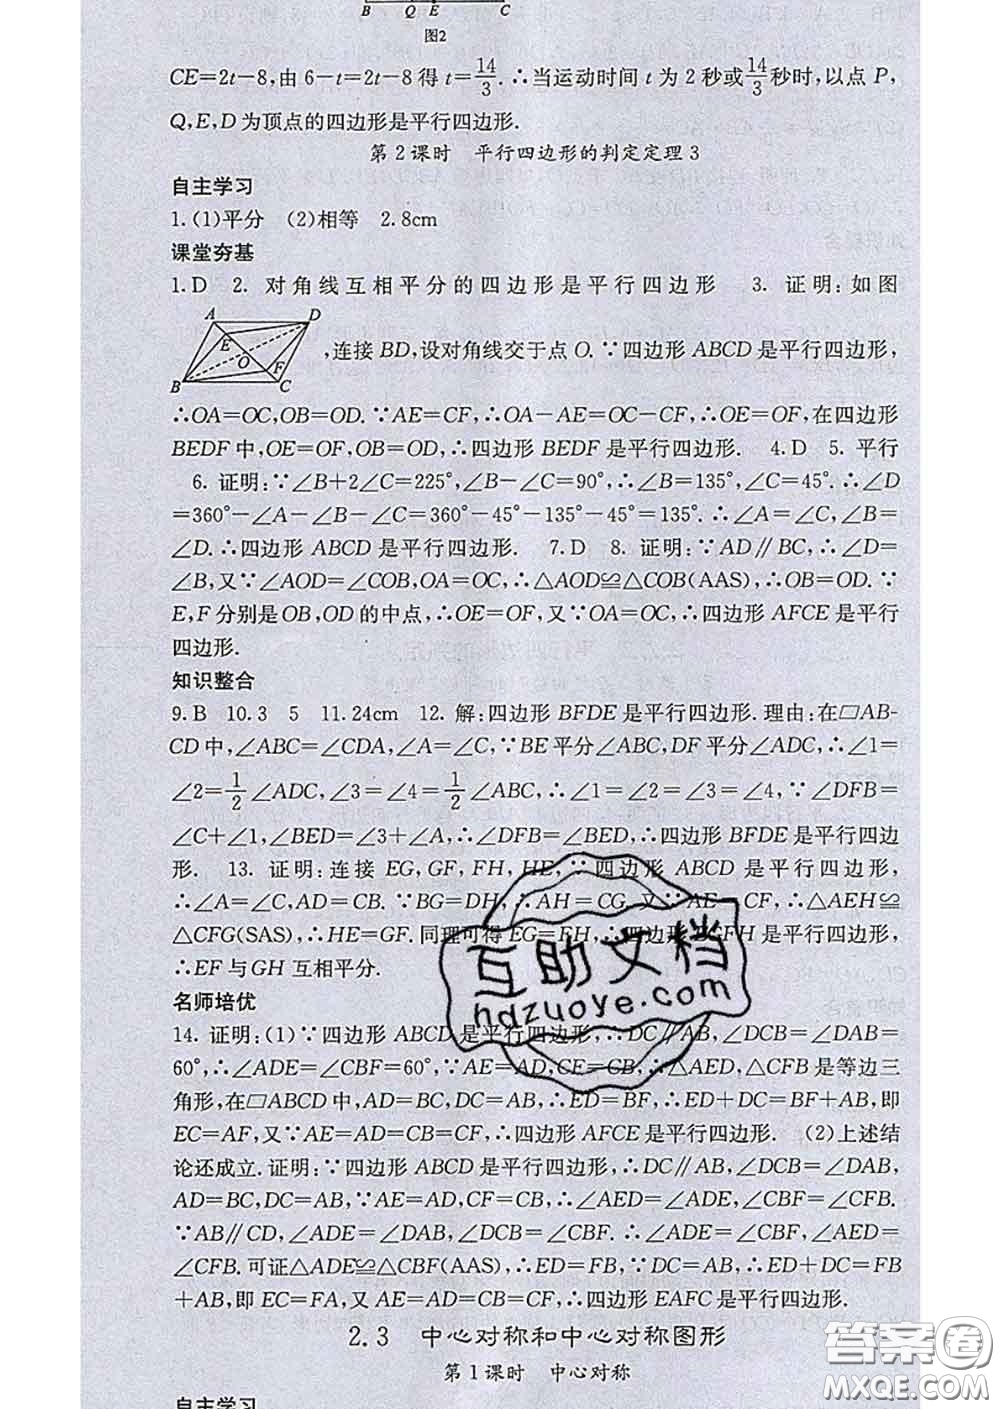 B Q E C
图2
CE=2t-8,由 6-t=2t-8 得 t=14/3.∴当运动时间 t 为 2 秒或14/3秒时,以点 P,
Q,E,D 为顶点的四边形是平行四边形.
第2课时 平行四边形的判定定理3
自主学习
1.(1)平分 (2)相等 2.8cm
课堂夯基
1.D 2. 对角线互相平分的四边形是平行四边形 3. 证明:如图
A D E O F B C
,连接 BD,设对角线交于点 O.∵四边形 ABCD 是平行四边形,
∴OA=OC,OB=OD.∵AE=CF,∴OA-AE=OC-CF,∴OE=OF,在四边形
BEDF 中,OE=OF,OB=OD,∴四边形 BEDF 是平行四边形. 4.D 5. 平行
6. 证明:∵∠B+2∠C=225°,∠B-∠C=90°,∴∠B=135°,∠C=45°.∴∠D
=360°-∠A-∠B-∠C=360°-45°-135°-45°=135°.∴∠A=∠C,∠B=
∠D.∴四边形 ABCD 是平行四边形. 7.D 8. 证明:∵AD∥BC,∴∠D=
∠B,又∵∠AOD=∠COB,OA=OC,∴△AOD≌△COB(AAS),∴OB=OD.∵
E,F 分别是 OB,OD 的中点,∴OE=OF,又∵OA=OC,∴四边形 AFCE 是平行
四边形.
知识整合
9.B 10.3 5 11.24cm 12. 解:四边形 BFDE 是平行四边形.理由:在▱AB-
CD 中,∠ABC=∠CDA,∠A=∠C,∵BE 平分∠ABC,DF 平分∠ADC,∴∠1=
∠2=1/2∠ADC,∠3=∠4=1/2∠ABC,∴∠1=∠2=∠3=∠4,∵∠DFB=
∠C+∠1,∠BED=∠3+∠A,∴∠DFB=∠BED,∴四边形 BFDE 是平行四边
形. 13. 证明:连接 EG,GF,FH,HE,∵四边形 ABCD 是平行四边形,
∴∠A=∠C,AD=CB.∵BG=DH,∴AH=CG,又∵AE=CF,∴△AEH≌
△CFG(SAS),∴HE=GF.同理可得 EG=FH,∴四边形 EGFH 是平行四边形,
∴EF 与GH 互相平分.
名师培优
14. 证明:(1)∵四边形 ABCD 是平行四边形,∴DC∥AB,∠DCB=∠DAB=
60°,∴∠ADE=∠CBF=60°,∵AE=AD,CF=CB,∴△AED,△CFB 是等边三
角形,在▱ABCD 中,AD=BC,DC=AB,∴ED=BF,∴ED+DC=BF+AB,即
EC=AF,又∵AE=AD=CB=CF,∴四边形 AFCE 是平行四边形. (2)上述结
论还成立.证明:∵四边形 ABCD 是平行四边形,∴DC∥AB,∠DCB=∠DAB,
AD=BC,DC=AB,∵AE=AD,CF=CB,∴∠AED=∠ADE,∠CBF=∠CFB.
∵AB∥CD,∠ADE=∠DAB,∠DCB=∠CBF.∴∠ADE=∠CBF,∠AED=
∠CFB.可证△ADE≌△CBF(AAS),∴ED=FB,∵DC=AB,∴ED+DC=FB
+AB,即 EC=FA,又 AE=AD=CB=CF,∴四边形 EAFC 是平行四边形.
2.3 中心对称和中心对称图形
第1课时 中心对称
自主学习
互助文档
hdzuoye.com
答案圈
MXQE.COM